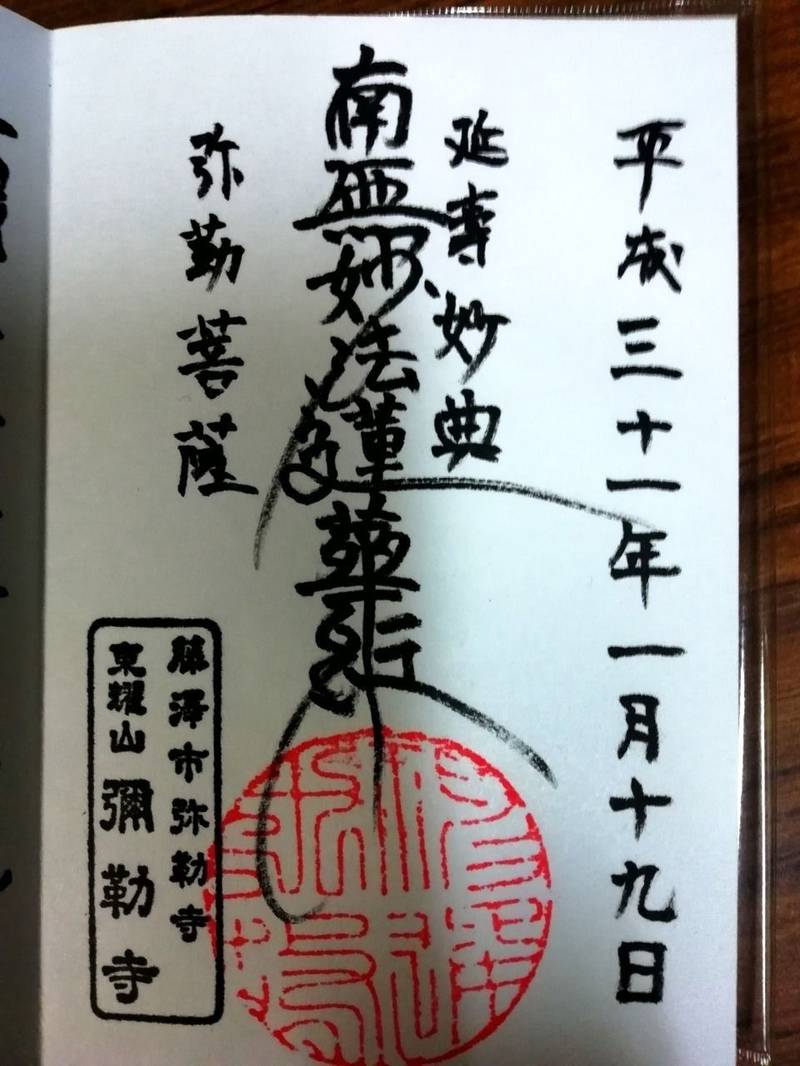 平成三十一年一月十九日
延壽妙典
南無妙法蓮華経
弥勤菩薩
藤澤市弥勒寺
東耀山 彌勒寺